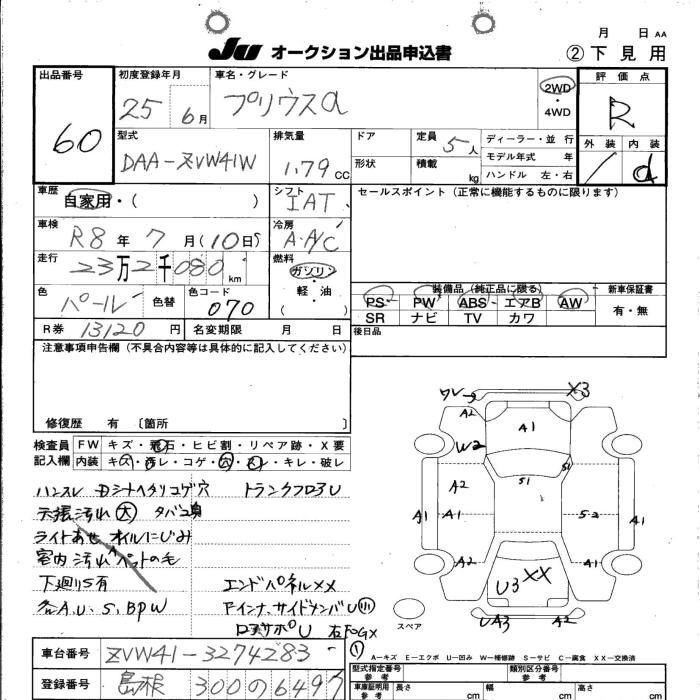 月 日 AA
JU オークション出品申込書 ②下見用
出品番号 60
初度登録年月 25 6月
車名・グレード プリウスα
2WD・4WD
評価点 R
型式 DAA-ZVW41W
排気量 1.79 CC
ドア
形状
定員 5人
積載 kg
ディーラー・並行
モデル年式 年
ハンドル 左・右
外装 内装
d
車歴 自家用・( )
シフト IAT
セールスポイント (正常に機能するものに限ります)
車検 R8年 7月(10日)
冷房 A.A/C
走行 23万2千080km
燃料 ガソリン・軽・油 ( )
色 パール 色替 色コード 070
装備品 (純正品に限る) 新車保証書
PS PW ABS エアB AW 有・無
SR ナビ TV カワ
R券 13120円 名変期限 月 日
後日品
注意事項申告欄 (不具合内容等は具体的に記入してください)
修復歴 有 〔箇所 〕
検査員記入欄 FW キズ・飛石・ヒビ割・リペア跡・X要
内装 キズ・汚レ・コゲ・穴・スレ・キレ・破レ
ハンスレ トランクフロアU
天張汚れ 大 タバコ臭
ライトあせ オイルにじみ
室内汚れ ペットの毛
下廻りS有 エンドパネルXX
A.U.S.BPW アインナ,サイドメンバU小
ワレ X3
A2 A1
W2
S1
S1
A2
A1 A1 S2 A1
A2 A1
U3 XX
UA3 A2
スペア
①
A-キズ E-エクボ U-凹み W-補修跡 S-サビ C-腐食 XX-交換済
車台番号 ZVW41-3274283
登録番号 島根 300の6497
型式指定番号 参考
類別区分番号 参考
車庫証明用 参考 長さ cm 幅 cm 高さ cm